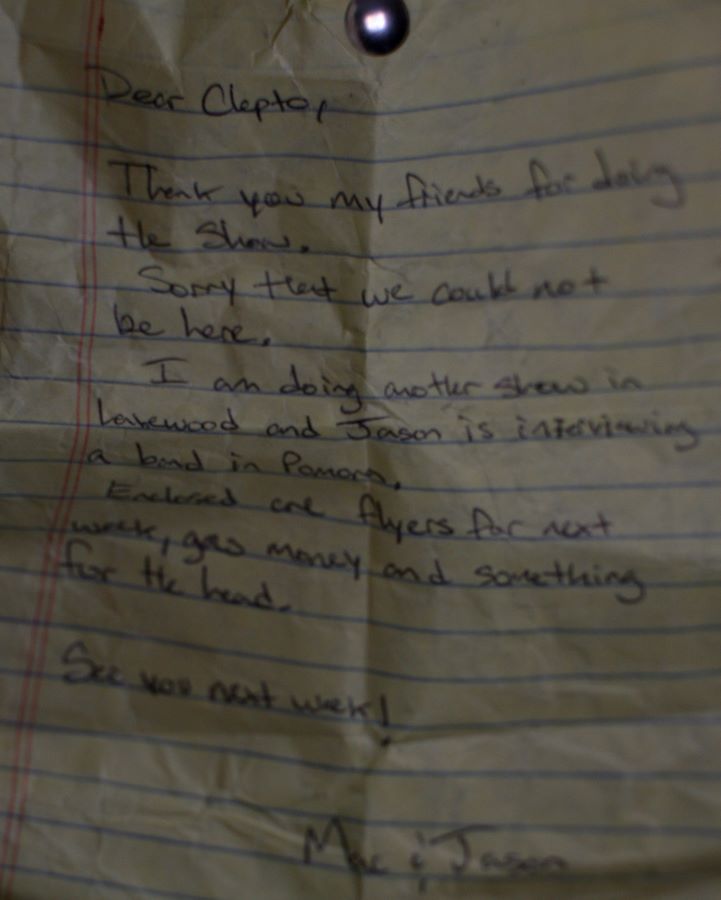 Dear Clepto,
Thank you my friends for doing
the show.
Sorry that we could not
be here.
I am doing another show in
Lakewood and Jason is interviewing
a band in Pomona.
Enclosed are flyers for next
week, gas money and something
for the head.
See you next week!
Mac & Jason